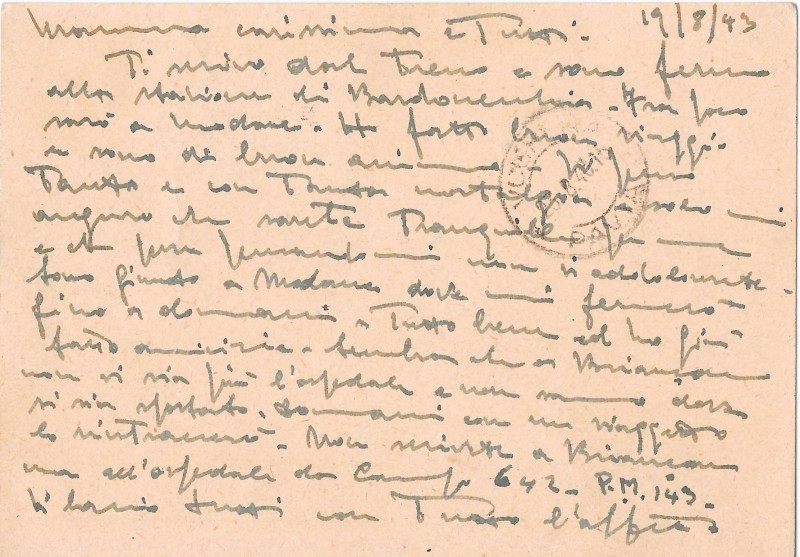 Mamma carissima e Tutti. 19/8/43
Ti scrivo dal treno e sono fermo
alla stazione di Bardonecchia. Fra poco
sarò a Modane. Ho fatto buon viaggio
e sono di buon animo. Vi penso
tanto e con tanta nostalgia. Solo mi
auguro che siate tranquilli per me
e che pur pensandomi non vi addoloriate.
Sono giunto a Modane dove mi fermerò
fino a domani. Tutto bene ed ho già
fatto amicizie. Sembra che a Briancon
non vi sia più l'ospedale e non sanno dove
si sia spostato. Domani con un viaggetto
lo rintraccerò. Non scrivete a Briancon
ma all'ospedale da Campo 642. P.M. 143.
Vi bacio tutti con tutto l'affetto.
PADOVA